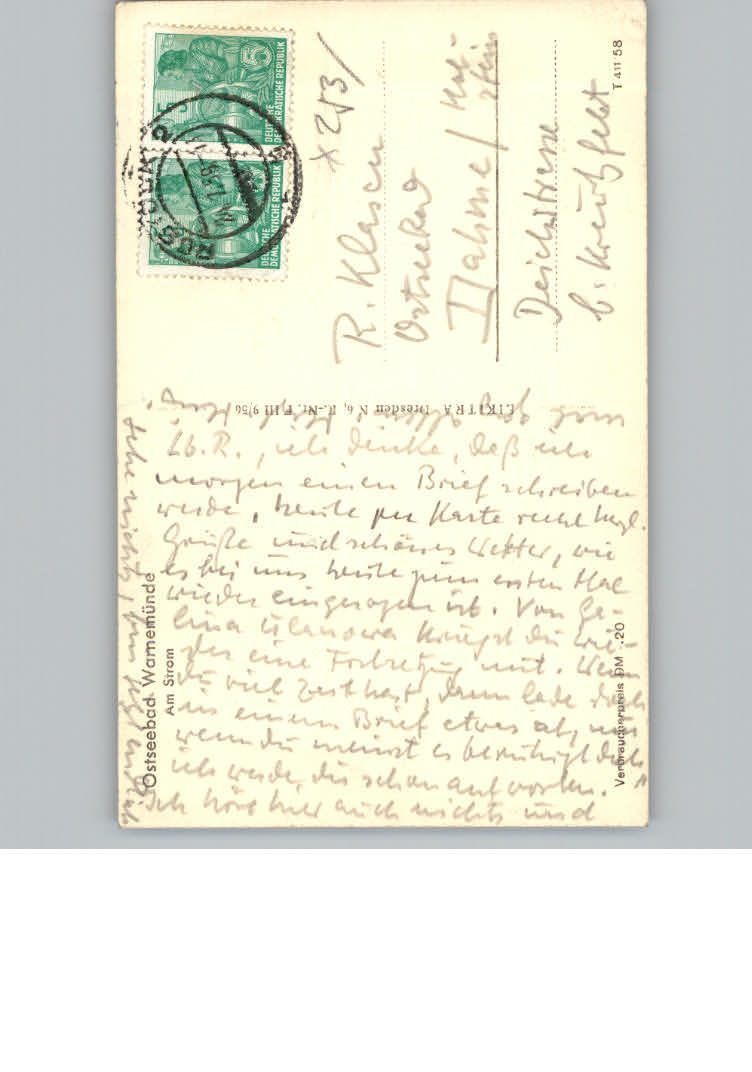 DEUTSCHE
DEMOKRATISCHE REPUBLIK
5
DEUTSCHE
DEMOKRATISCHE REPUBLIK
x 253/
R. Klasen
Ostseebad
Dahme / Hol-
stein
Deichstrasse
b. Kreutzfeldt
T 411 58
EIKITRA Dresden N 6, R.-Nr. F III 9/56
Lb. R., ich denke, daß ich
morgen einen Brief schreiben
werde, heute per Karte recht hrzl.
Grüße und schönes Wetter, wie
es bei uns heute zum ersten Mal
wieder eingezogen ist. Von Ga-
lina Ulanowa kriegst du wie-
der eine Fortsetzung mit. Wenn
du viel Zeit hast, dann lade doch
in einem Brief etwas ab, und
wenn du meinst es beruhigt dich
ich werde dir schon antworten.
Ich höre hier auch nichts und
sehe nichts,
Ostseebad Warnemünde
Am Strom
Verbraucherpreis DM -.20